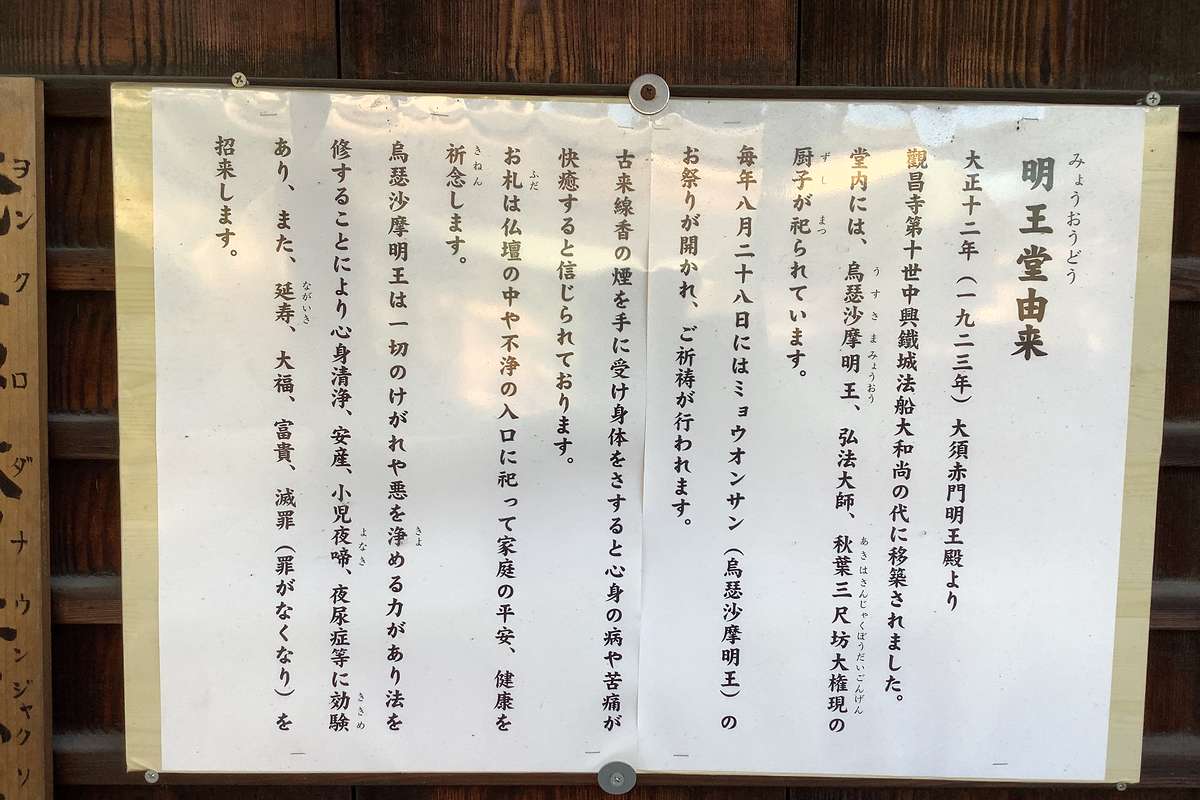 明王堂由来
みょうおうどう
大正十二年（一九二三年）大須赤門明王殿より
觀昌寺第十世中興鐵城法船大和尚の代に移築されました。
堂内には、烏瑟沙摩明王、弘法大師、秋葉三尺坊大権現の
うすさまみょうおう
あきはさんじゃくぼうだいごんげん
厨子が祀られています。
ずし
まつ
毎年八月二十八日にはミョウオンサン（烏瑟沙摩明王）の
お祭りが開かれ、ご祈祷が行われます。
古来線香の煙を手に受け身体をさすると心身の病や苦痛が
快癒すると信じられております。
お札は仏壇の中や不浄の入口に祀って家庭の平安、健康を
ふだ
祈念します。
きねん
烏瑟沙摩明王は一切のけがれや悪を浄める力があり法を
きよ
修することにより心身清浄、安産、小児夜啼、夜尿症等に効験
よなき
ききめ
あり、また、延寿、大福、富貴、滅罪（罪がなくなり）を
ながいき
招来します。
ヲンクロダナウンジャクソ